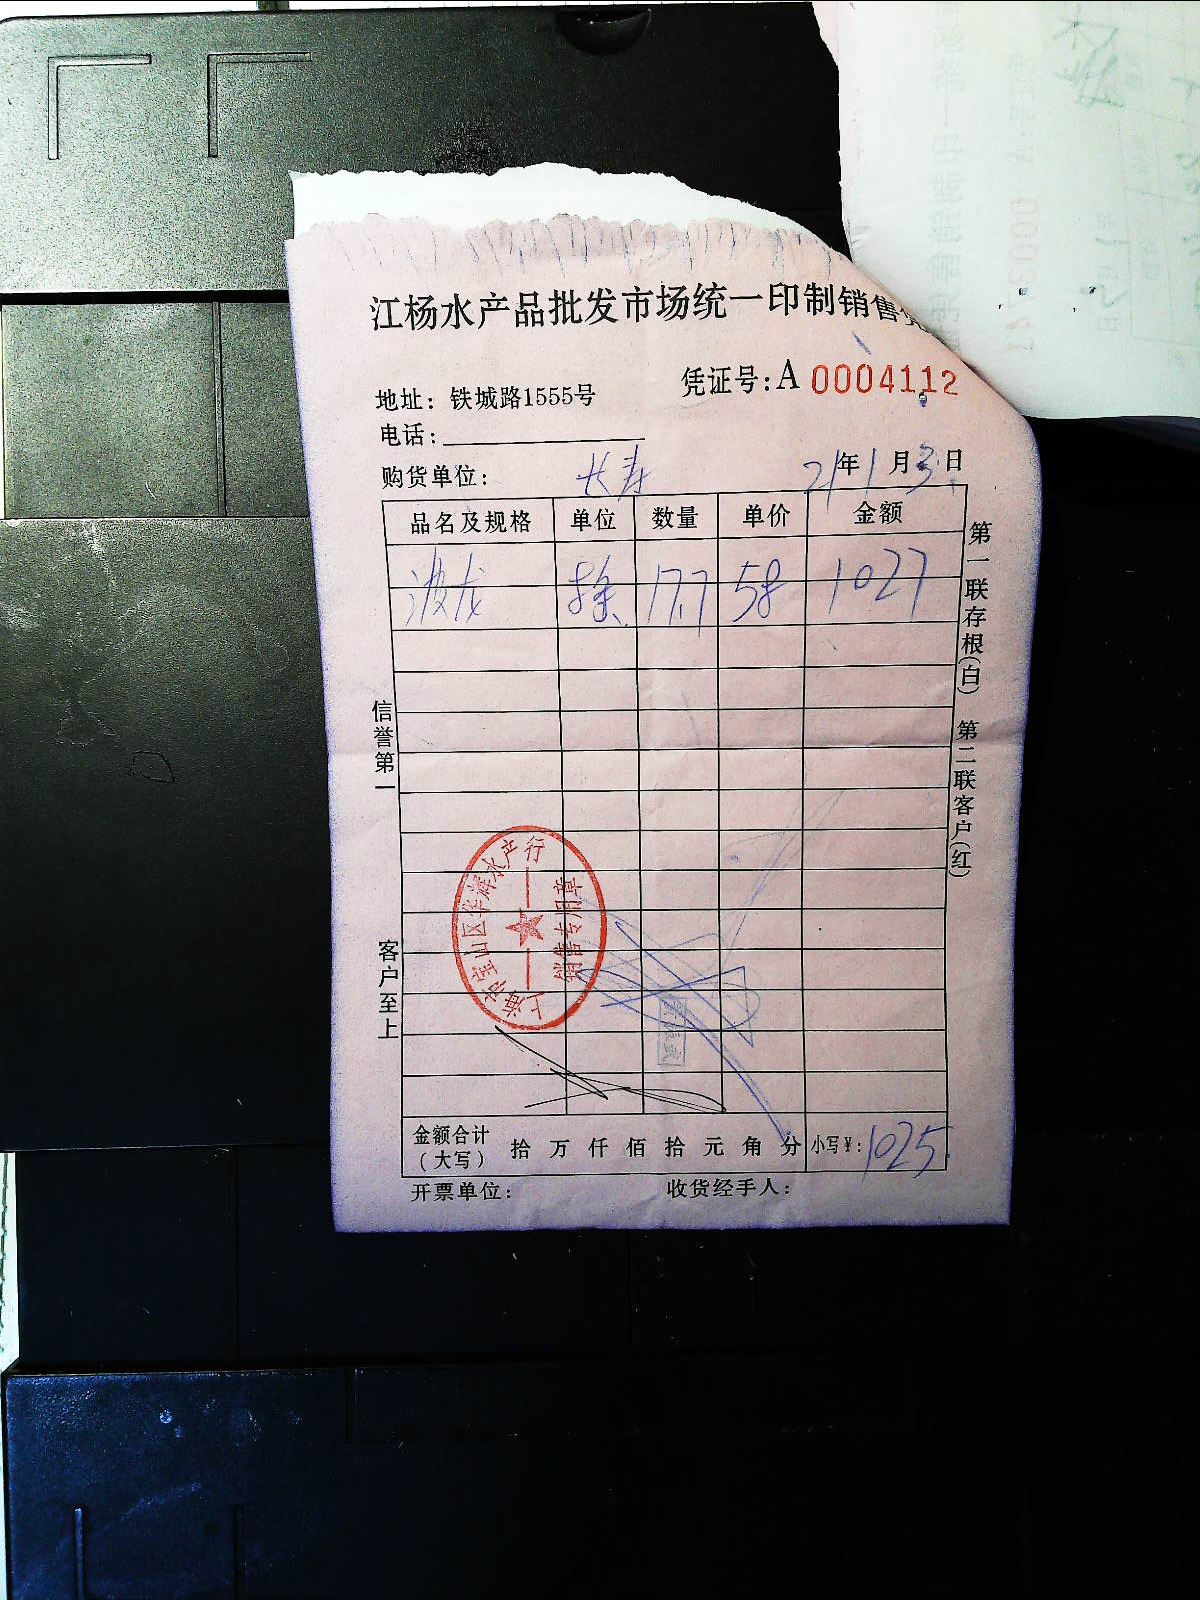 江杨水产品批发市场统一印制销售凭
凭证号:A 0004112
地址: 铁城路1555号
电话:
购货单位: 长寿 21年1月3日
品名及规格 单位 数量 单价 金额
波龙 17.7 58 1027
第一联存根(白) 第二联客户(红)
信誉第一
客户至上
上海市宝山区华辉水产行
销售专用章
金额合计(大写) 拾 万 仟 佰 拾 元 角 分 小写¥: 1025
开票单位: 收货经手人: